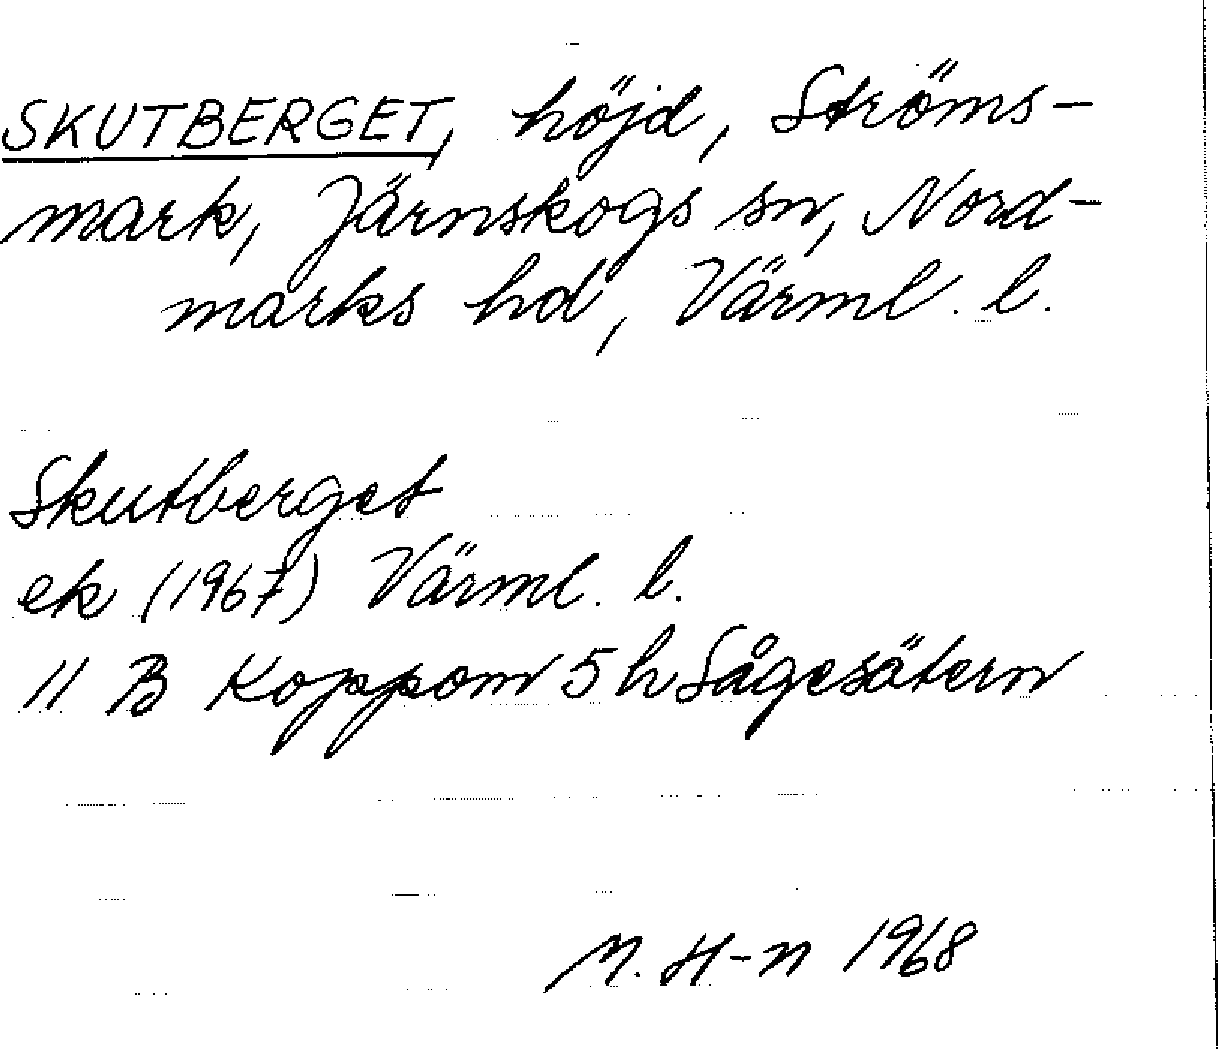 SKUTBERGET, höjd, Ströms-
mark, Järnskogs sn, Nord-
marks hd, Värml. l.
Skutberget
ek (1967) Värml. l.
11 B Koppom 5 h Sågesätern
M. H-n 1968